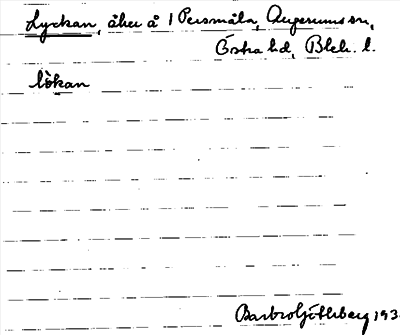 Lyckan, åker å 1 Persmåla, Augerums sn,
Östra hd, Blek. l.
lökan
Barbro Götlsberg 193